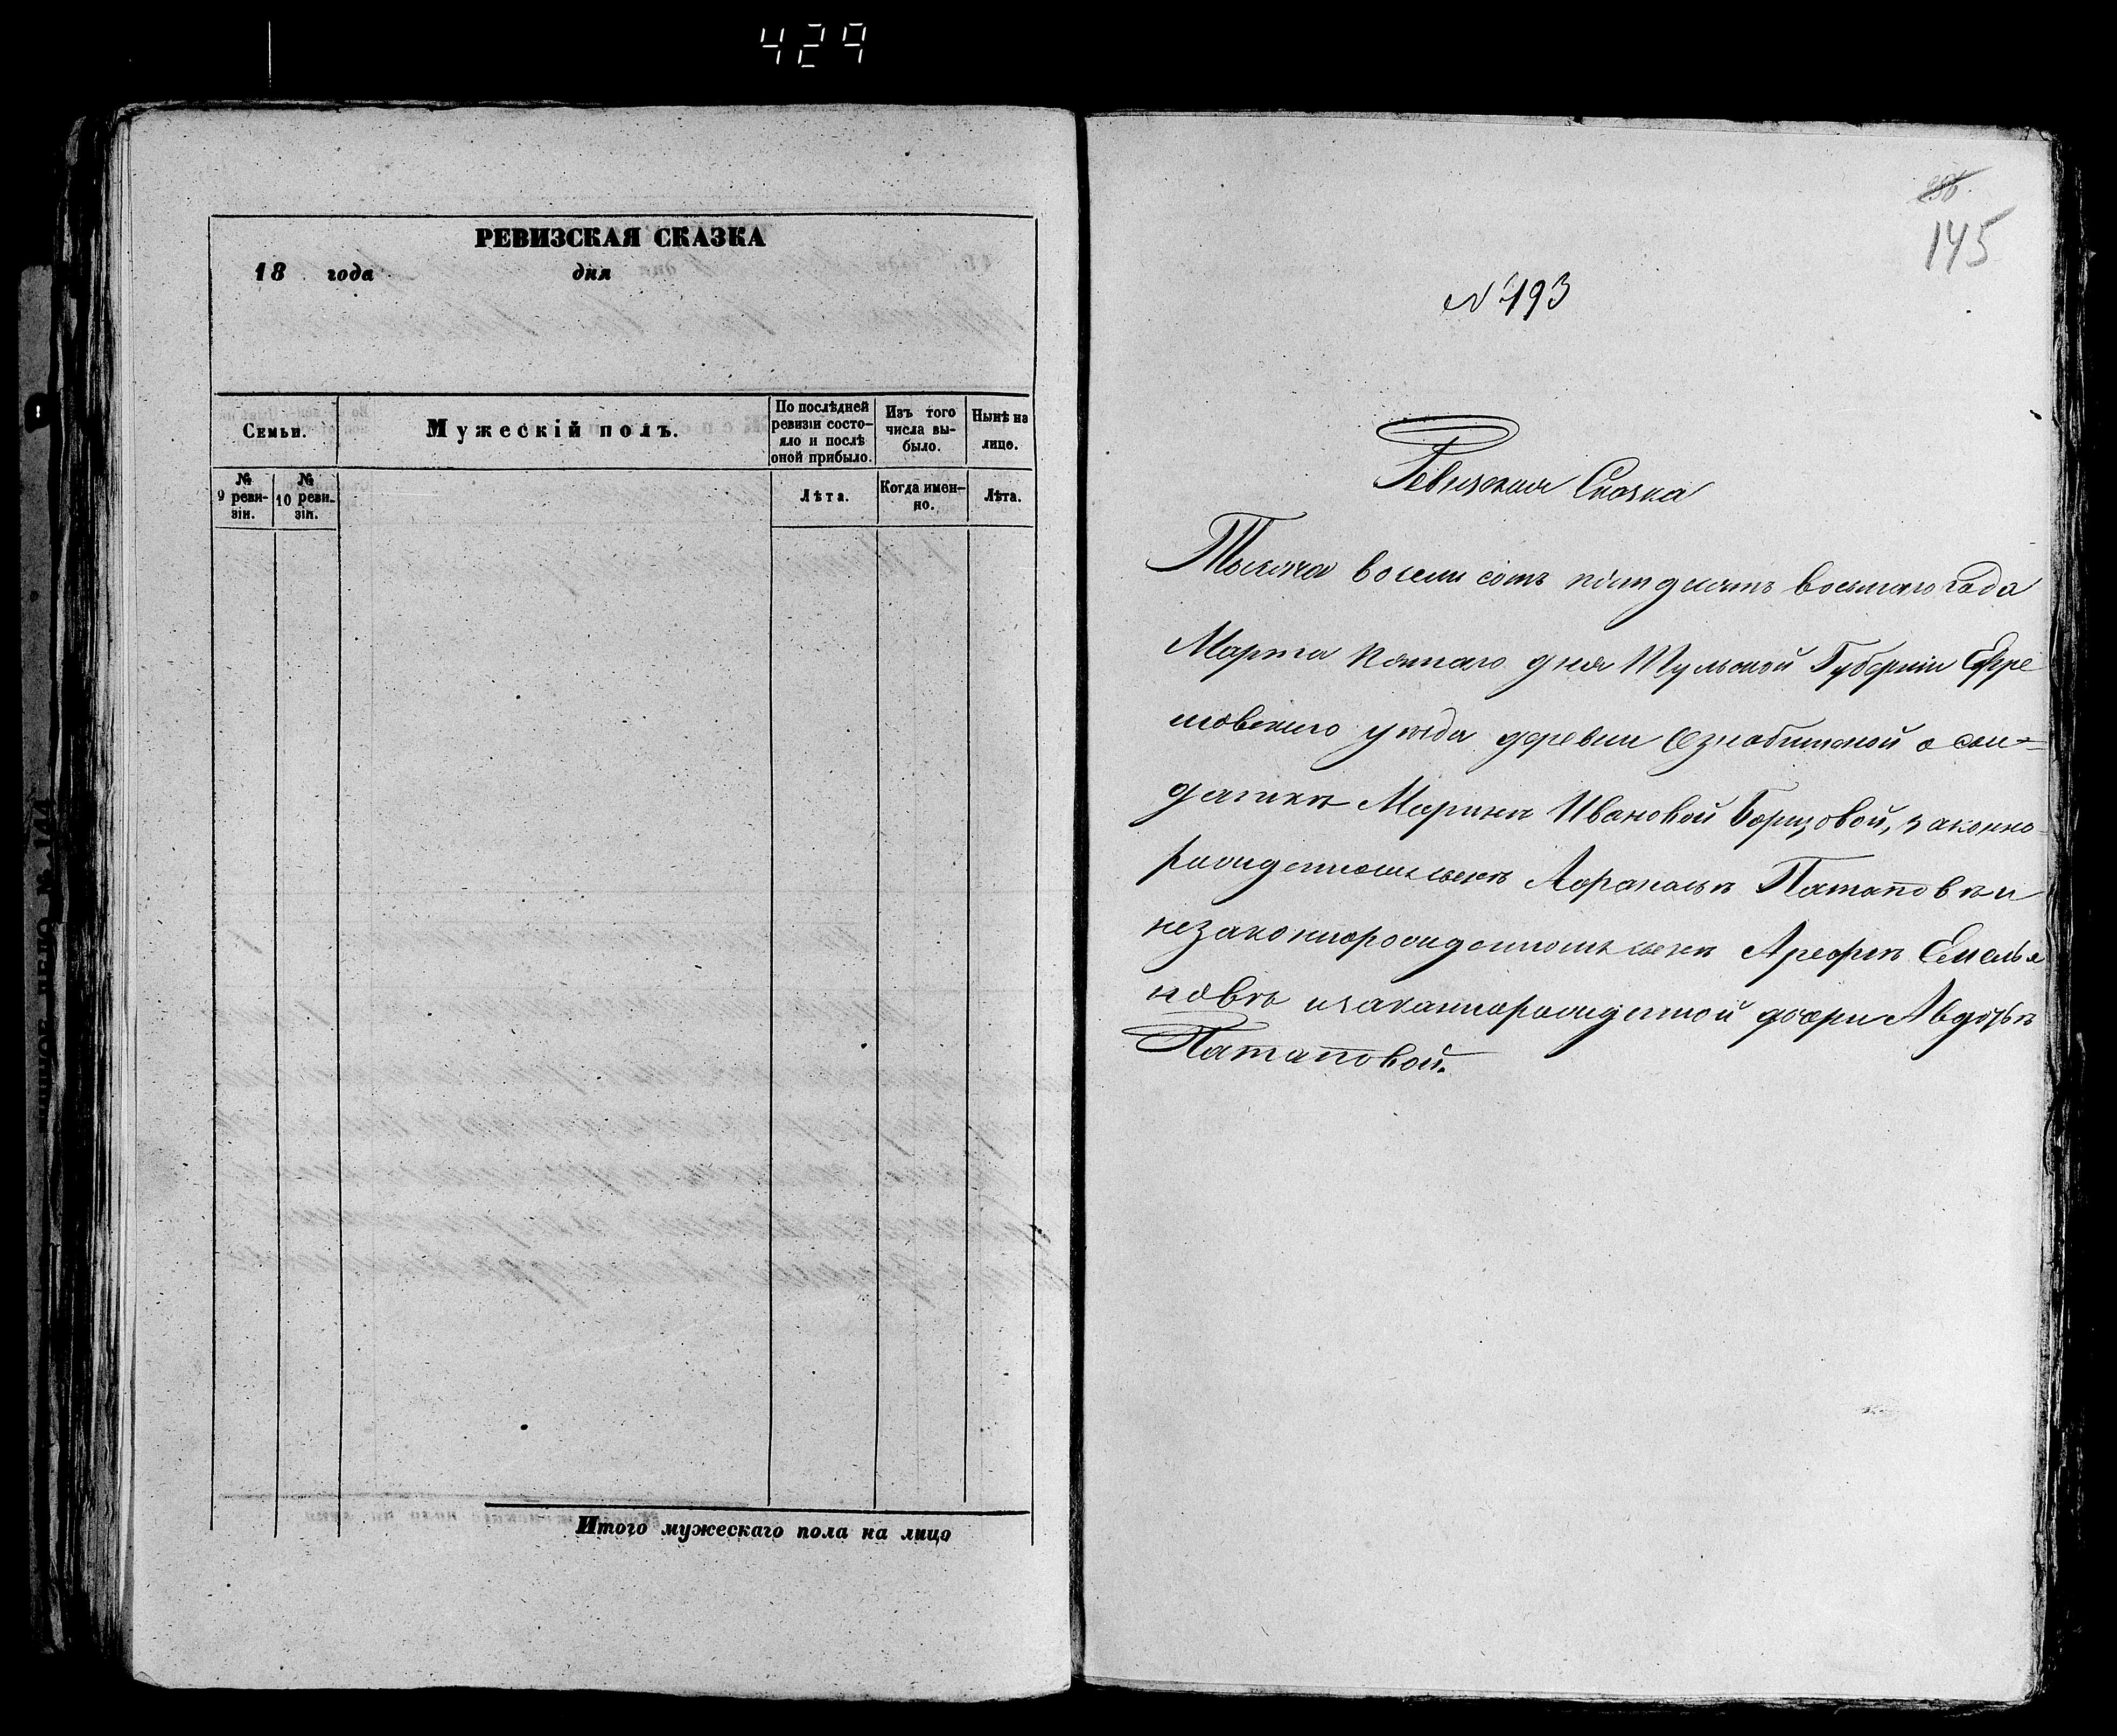 429
РЕВИЗСКАЯ СКАЗКА
18 года дня
Семьи.
Мужескій полъ.
По послѣдней ревизіи состо-яло и послѣ оной прибыло.
Изъ того числа вы-было.
Нынѣ на лице.
№ 9 реви-зіи.
№ 10 реви-зіи.
Лѣта.
Когда имен-но.
Лѣта.
Итого мужескаго пола на лицо
145
№ 193
Ревизская Сказка
Тысяча восемь сотъ пятдесятъ восьмаго года
Марта пятаго дня Тульской Губерніи Ефре
мовскаго уѣзда деревни Ознобишиной о сол=
даткѣ Маринѣ Ивановой Борзовой, законно-
рожденномъ сынѣ Потаповѣ и
незаконнорожденномъ сынѣ Арефѣ Емелья
новѣ и законнорожденной дочери Авдотьѣ
Патаповой.